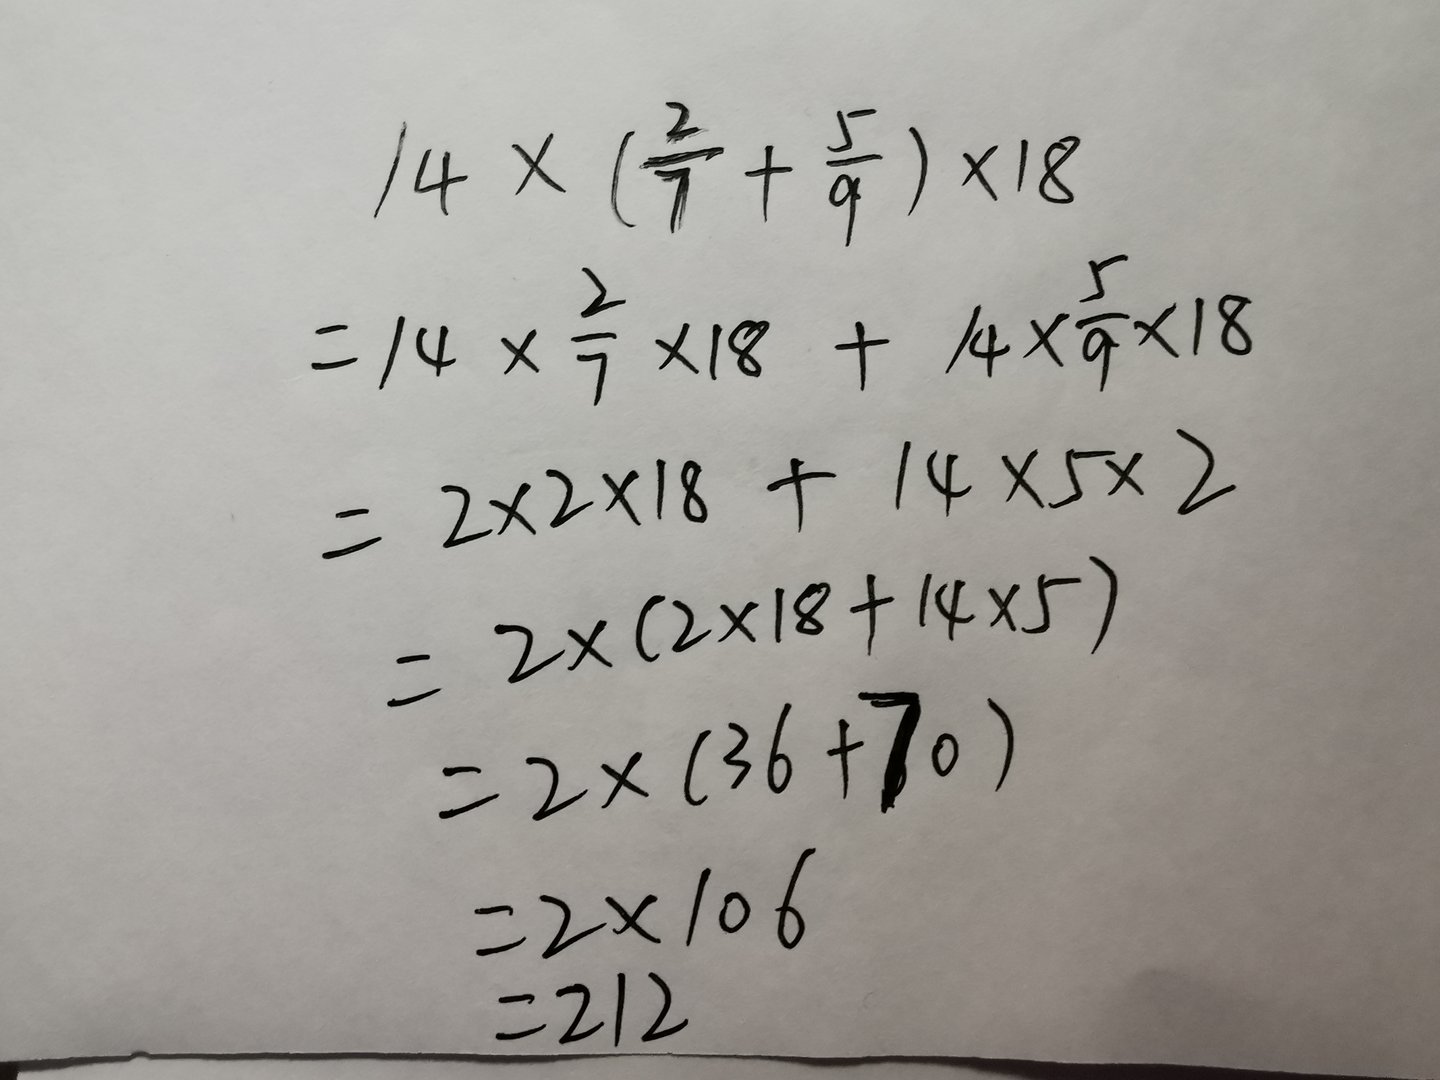 14 × (2/7 + 5/9) × 18
= 14 × 2/7 × 18 + 14 × 5/9 × 18
= 2×2×18 + 14×5×2
= 2×(2×18+14×5)
= 2×(36+70)
= 2×106
= 212